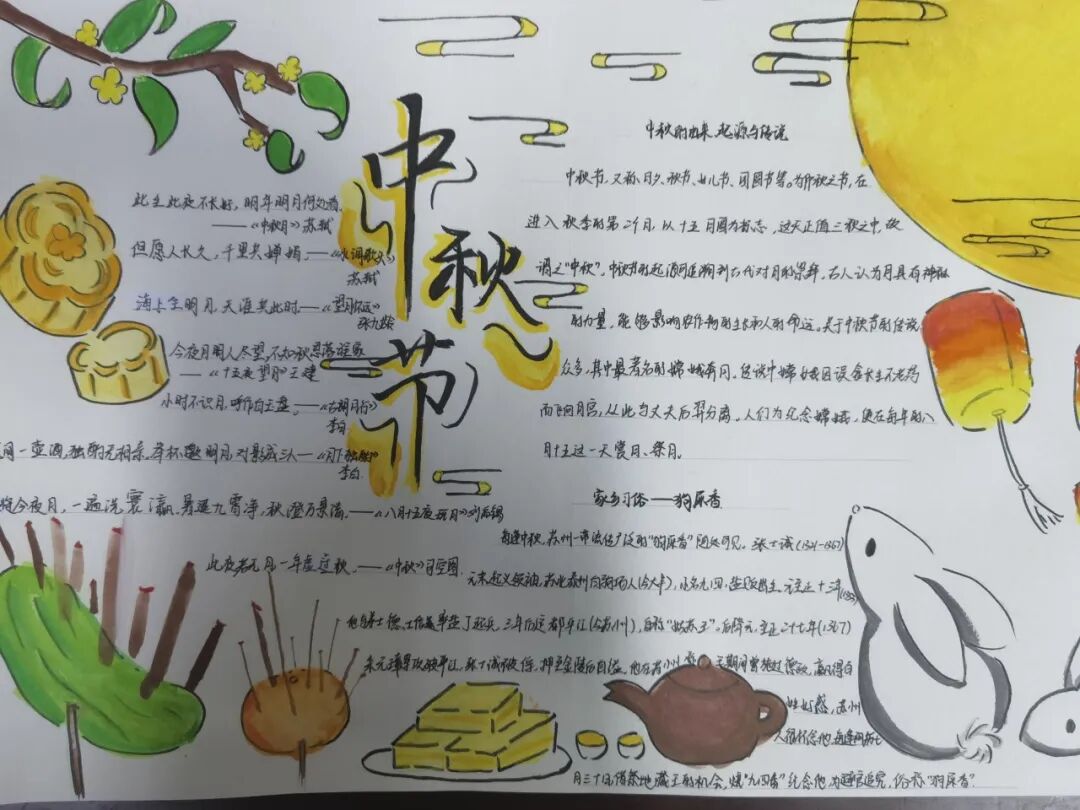 中秋节
此生此夜不长好，明年明月何处看。
——《中秋月》苏轼
但愿人长久，千里共婵娟。——《水调歌头》
苏轼
海上生明月，天涯共此时。——《望月怀远》
张九龄
今夜月明人尽望，不知秋思落谁家
——《十五夜望月》王建
小时不识月，呼作白玉盘。——《古朗月行》
李白
间一壶酒，独酌无相亲。举杯邀明月，对影成三人——《月下独酌》
李白
将今夜月，一遍洗寰瀛。暑退九霄净，秋澄万景清。——《八月十五夜玩月》刘禹锡
此夜若无月，一年虚过秋。——《中秋》司空图
中秋的由来、起源与传说
中秋节，又称月夕、秋节、女儿节、团圆节等。为仲秋之节，在
进入秋季的第二个月，以十五月圆为标志，这天正值三秋之中，故
谓之"中秋"，中秋节的起源可追溯到古代对月的崇拜，古人认为月具有神秘
的力量，能够影响农作物的生长和人的命运。关于中秋节的传说
众多，其中最著名的嫦娥奔月。传说中嫦娥因误食长生不老药
而飞向月宫，从此与丈夫后羿分离。人们为纪念嫦娥，便在每年的八
月十五这一天赏月、祭月。
家乡习俗——狗屎香
每逢中秋，苏州一带流传广泛的"狗屎香"随处可见。张士诚(1321-1367)
元末起义领袖，苏北泰州白驹场人(今大丰)，小名九四，盐贩出生。元至正十三年(1353)
他与弟士德、士信率盐丁起兵，三年后定都平江(今苏州)，自称"姑苏王"，后降元，至正二十七年(1367)
朱元璋军攻破平江，张士诚被俘，押至金陵后自缢。他在苏州 期间曾施过德政，赢得百
姓好感，苏州
人很怀念他，每逢阴历七
月三十日，借祭地藏王的机会，烧"九四香"纪念他，为避官追究，俗称"狗屎香"